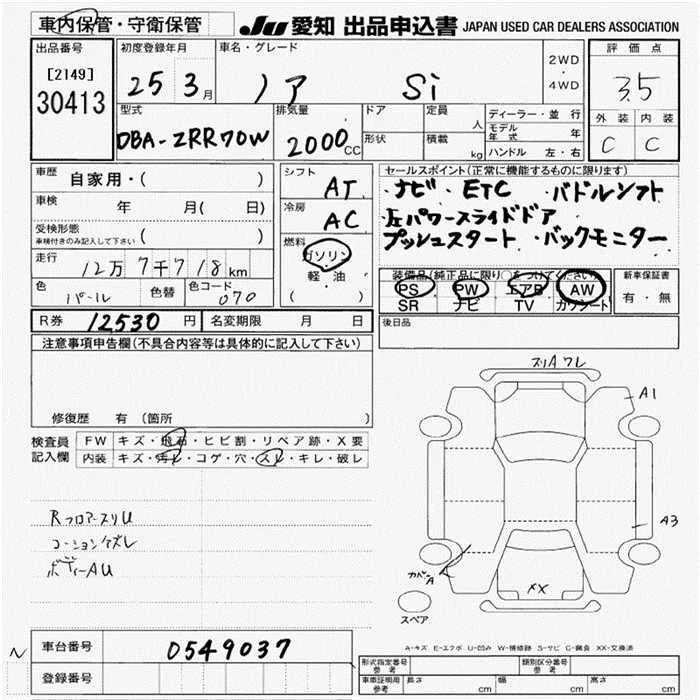 車内保管・守衛保管 JU 愛知 出品申込書 JAPAN USED CAR DEALERS ASSOCIATION
出品番号 初度登録年月 車名・グレード 2WD・4WD 評価点
[2149]
30413
25 3月 ノア Si 3.5
型式 排気量 ドア 定員 人 ディーラー・並行 外装 内装
DBA-ZRR70W 2000CC 形状 積載 kg モデル年式 年 C C
ハンドル 左・右
車歴 自家用・( ) シフト AT セールスポイント(正常に機能するものに限ります)
車検 年 月( 日) 冷房 AC ・ナビ・ETC ・パドルシフト
受検形態 ( ) ・左パワースライドドア
車検付きのみ記入して下さい
燃料 ガソリン プッシュスタート・バックモニター
走行 12万7千718km 軽・油
( )
装備品(純正品に限り○をつけてください) 新車保証書
色 パール 色替 色コード 070 PS PW エアB AW 有・無
SR ナビ TV カワシート
R券 12530円 名変期限 月 日 後日品
注意事項申告欄(不具合内容等は具体的に記入して下さい)
修復歴 有 (箇所
検査員記入欄 FW キズ・飛石・ヒビ割・リペア跡・X要
内装 キズ・汚れ・コゲ・穴・スレ・キレ・破レ
RフロアースリU
コーションケズレ
ボディーAU
スリA ワレ
A1
A3
カバンA
XX
スペア
A-キズ E-エクボ U-凹み W-補修跡 S-サビ C-腐食 XX-交換済
N 車台番号 0549037
登録番号
型式指定番号 参考 類別区分番号 参考
車庫証明用 参考 長さ cm 幅 cm 高さ cm